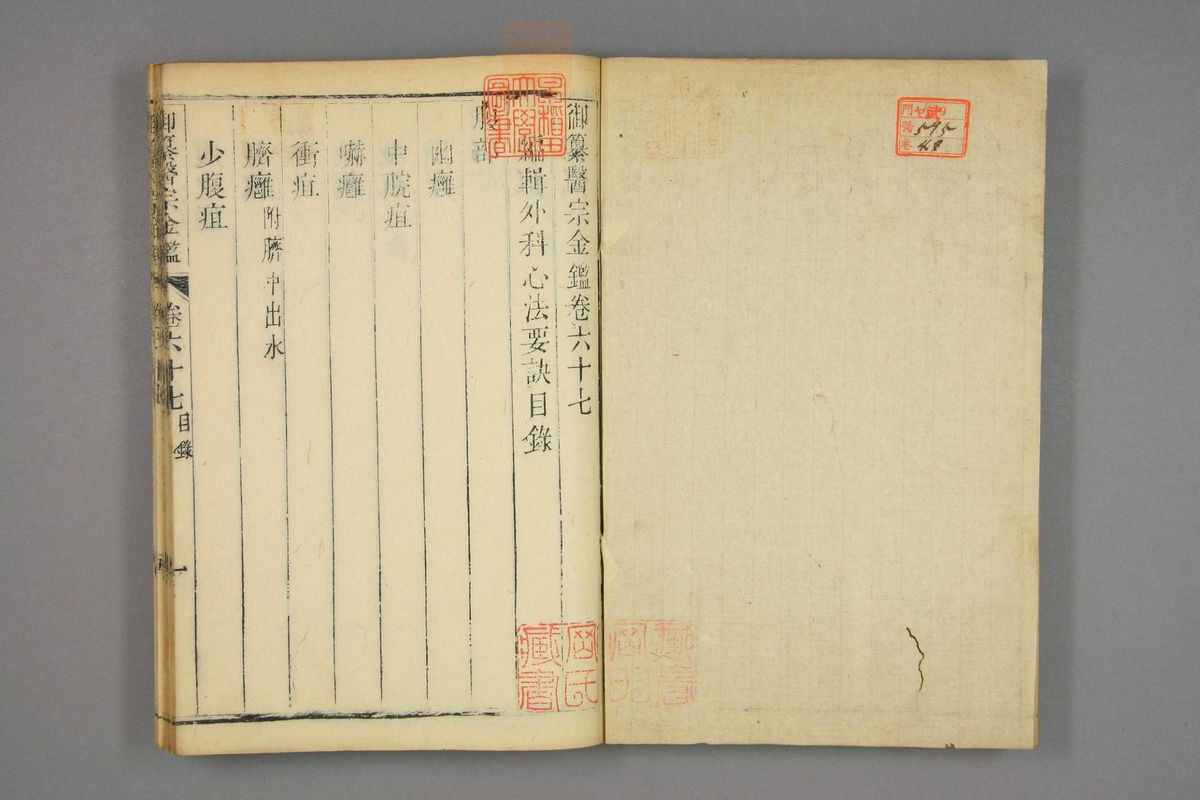 御纂醫宗金鑑卷六十七
編輯外科心法要訣目錄
腹部
幽癰
中脘疽
嚇癰
衝疽
臍癰 附臍中出水
少腹疽
御纂醫宗金鑑 卷六十七 目錄 一
早稻田
大學
圖書
藏書
門
號
卷
595